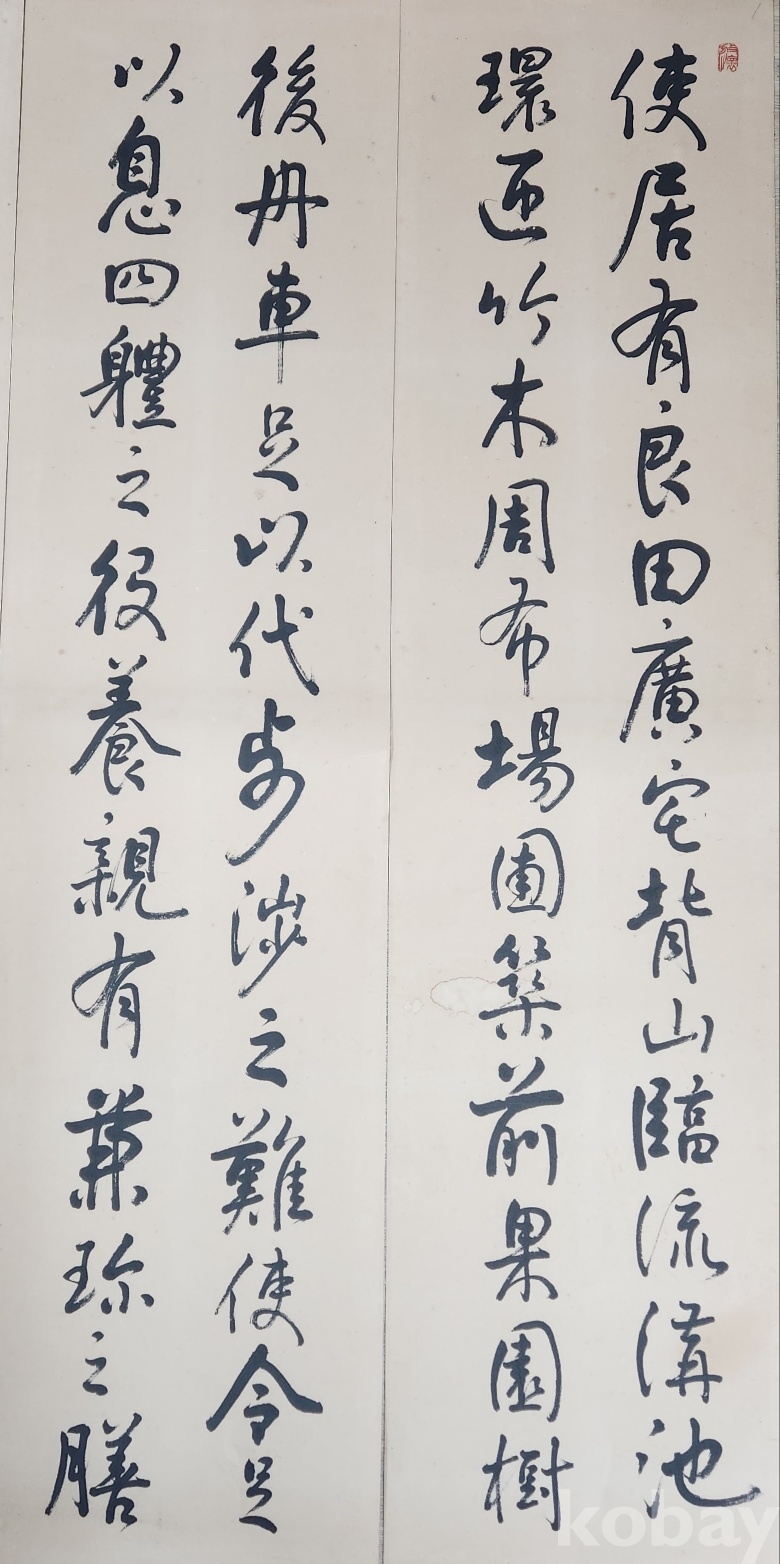 使居有良田廣宅背山臨流溝池
環匝竹木周布場圃築前果園樹
後舟車足以代步涉之難使令足
以息四體之役養親有兼珍之膳
kobay